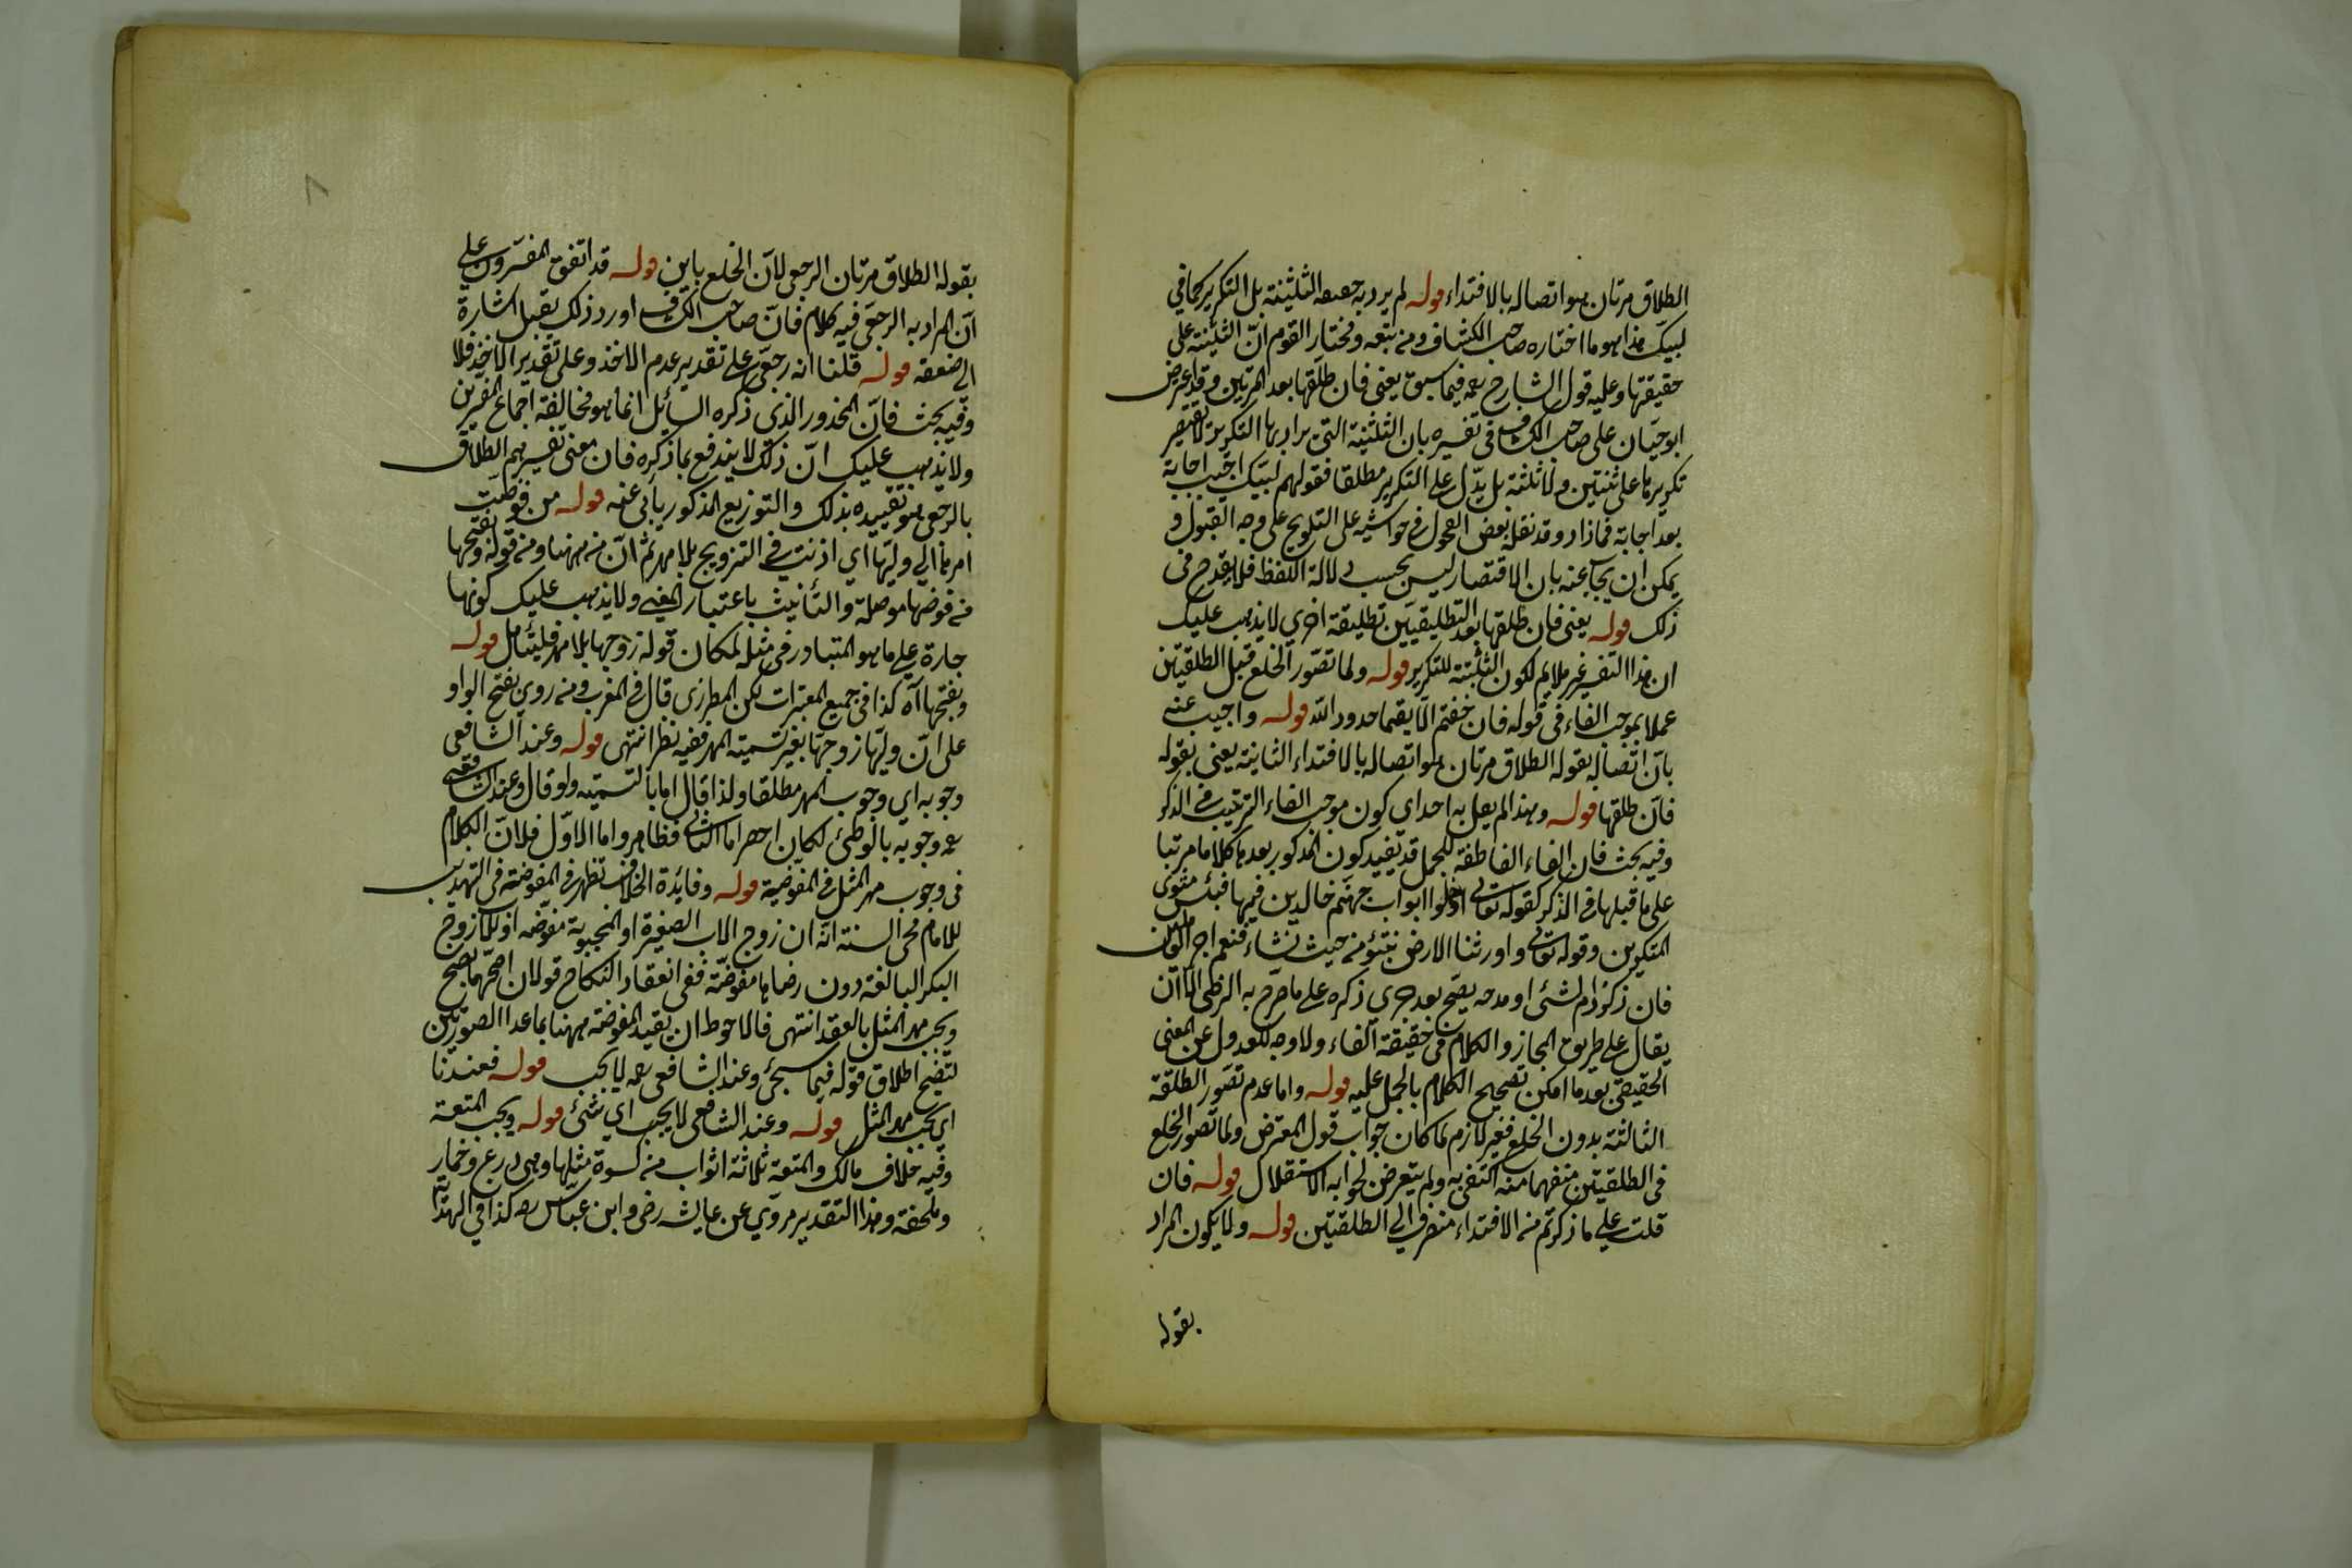 الطلاق مرتان هو اتصاله بالافتداء قوله لم يرد به حقيقة التثنية بل التكرير كما في
لبيك هذا هو ما اختاره صاحب الكشاف ومن تبعه ومختار القوم ان التثنية على
حقيقتها وعليه قول الشارح رحمه فيما سبق يعني فان طلقها بعد المرتين وقد اعترض
ابو حيان على صاحب الكشاف في تفسيره بان التثنية التي يراد بها التكرير لا تقتصر
تكريرها على ثنتين ولا ثلثة بل يدل على التكرير مطلقا فقولهم لبيك اجيب اجابة
بعد اجابة فما زاد وقد نقله بعض الفحول في حواشيه على التلويح على وجه القبول و
يمكن ان يجاب عنه بان الاقتصار ليس بحسب دلالة اللفظ فلا يقدح في
ذلك قوله يعني فان طلقها بعد التطليقتين تطليقة اخري لا يذهب عليك
ان هذا التفسير غير ملايم لكون التثنية للتكرير قوله ولما تصور الخلع قبل الطلقتين
عملا بموجب الفاء في قوله فان خفتم الا يقيما حدود الله قوله واجيب عنه
بان اتصاله بقوله الطلاق مرتان هو اتصاله بالافتداء الثانية يعني بقوله
فان طلقها قوله وبهذا لم يعل به احد اي كون موجب الفاء الترتيب في الذكر
وفيه بحث فان الفاء العاطفة للجمل قد تفيد كون المذكور بعدها كلاما مرتبا
على ما قبلها في الذكر كقوله تعالى ادخلوا ابواب جهنم خالدين فيها فبئس مثوى
المتكبرين وقوله تعالى واورثنا الارض نتبوء من حيث نشاء فنعم اجر العاملين
فان ذكر ذم لشئ او مدحه يصح بعد جري ذكره على ما صرح به الرضي الا ان
يقال على طريق المجاز والكلام في حقيقة الفاء ولا وجه للعدول عن المعنى
الحقيقي بعد ما امكن تصحيح الكلام بالحمل عليه قوله واما عدم تصور الطلقة
الثالثة بدون الخلع فغير لازم لما كان جواب قول المعترض ولما تصور الخلع
في الطلقتين منفهما منه اكتفى به ولم يتعرض لجوابه الاستقلال قوله فان
قلت على ما ذكرتم من الافتداء منصرف الى الطلقتين قوله ولا يكون المراد
بقوله
٨
بقوله الطلاق مرتان الرجعى لان الخلع باين قوله قد اتفق المفسرون على
ان المراد به الرجعي فيه كلام فان صاحب الكشاف اورد ذلك بقيل اشارة
الى ضعفه قوله قلنا انه رجعي على تقدير عدم الاخذ وعلى تقدير الاخذ فلا
وفيه بحث فان المحذور الذي ذكره السائل انما هو مخالفة اجماع المفسرين
ولا يذهب عليك ان ذلك لا يندفع بما ذكره فان معنى تفسيرهم الطلاق
بالرجعي هو تقييده بذلك والتوزيع المذكور يأبى عنه قوله من فوضت
امرها الى وليها اي اذنت في التزويج بلا مهر ثم ان من ههنا ومن قوله وبفتحها
من فوضها موصلة والتأنيث باعتبار المعنى ولا يذهب عليك كونها
جارة على ما هو المتبادر في مثله لمكان قوله زوجها بلا مهر فليتأمل قوله
وبفتحها آه كذا في جميع المعتبرات لكن المطرزي قال في المغرب ومن روى بفتح الواو
على ان وليها زوجها بغير تسمية المهر ففيه نظر انتهى قوله وعند الشافعي
وجوبه اي وجوب المهر مطلقا ولذا قال اما بالتسمية ولو قال وعند الشافعي
رحمه وجوبه بالوطئ لكان احصر اما الثاني فظاهر واما الاول فلان الكلام
في وجوب مهر المثل في المفوضة قوله وفايدة الخلاف تظهر في المفوضة في التهذيب
للامام محي السنة انه ان زوج الاب الصغيرة او المجنونة مفوضة او زوج
البكر البالغة دون رضاها مفوضة ففي انعقاد النكاح قولان اصحهما يصح
ويجب مهر المثل بالعقد انتهى فالاحوط ان يقيد المفوضة ههنا بما عدا الصورتين
لتصح اطلاق قوله فيما سيجئ وعند الشافعي رحمه لا يجب قوله فعندنا
اي يجب مهر المثل قوله وعند الشافعي لا يجب اي شئ قوله ويجب المتعة
وفيه خلاف مالك والمتعة ثلاثة اثواب من كسوة مثلها وهي درع وخمار
وملحفة وهذا التقدير مروي عن عايشه رضى وابن عباس رضه كذا في الهداية